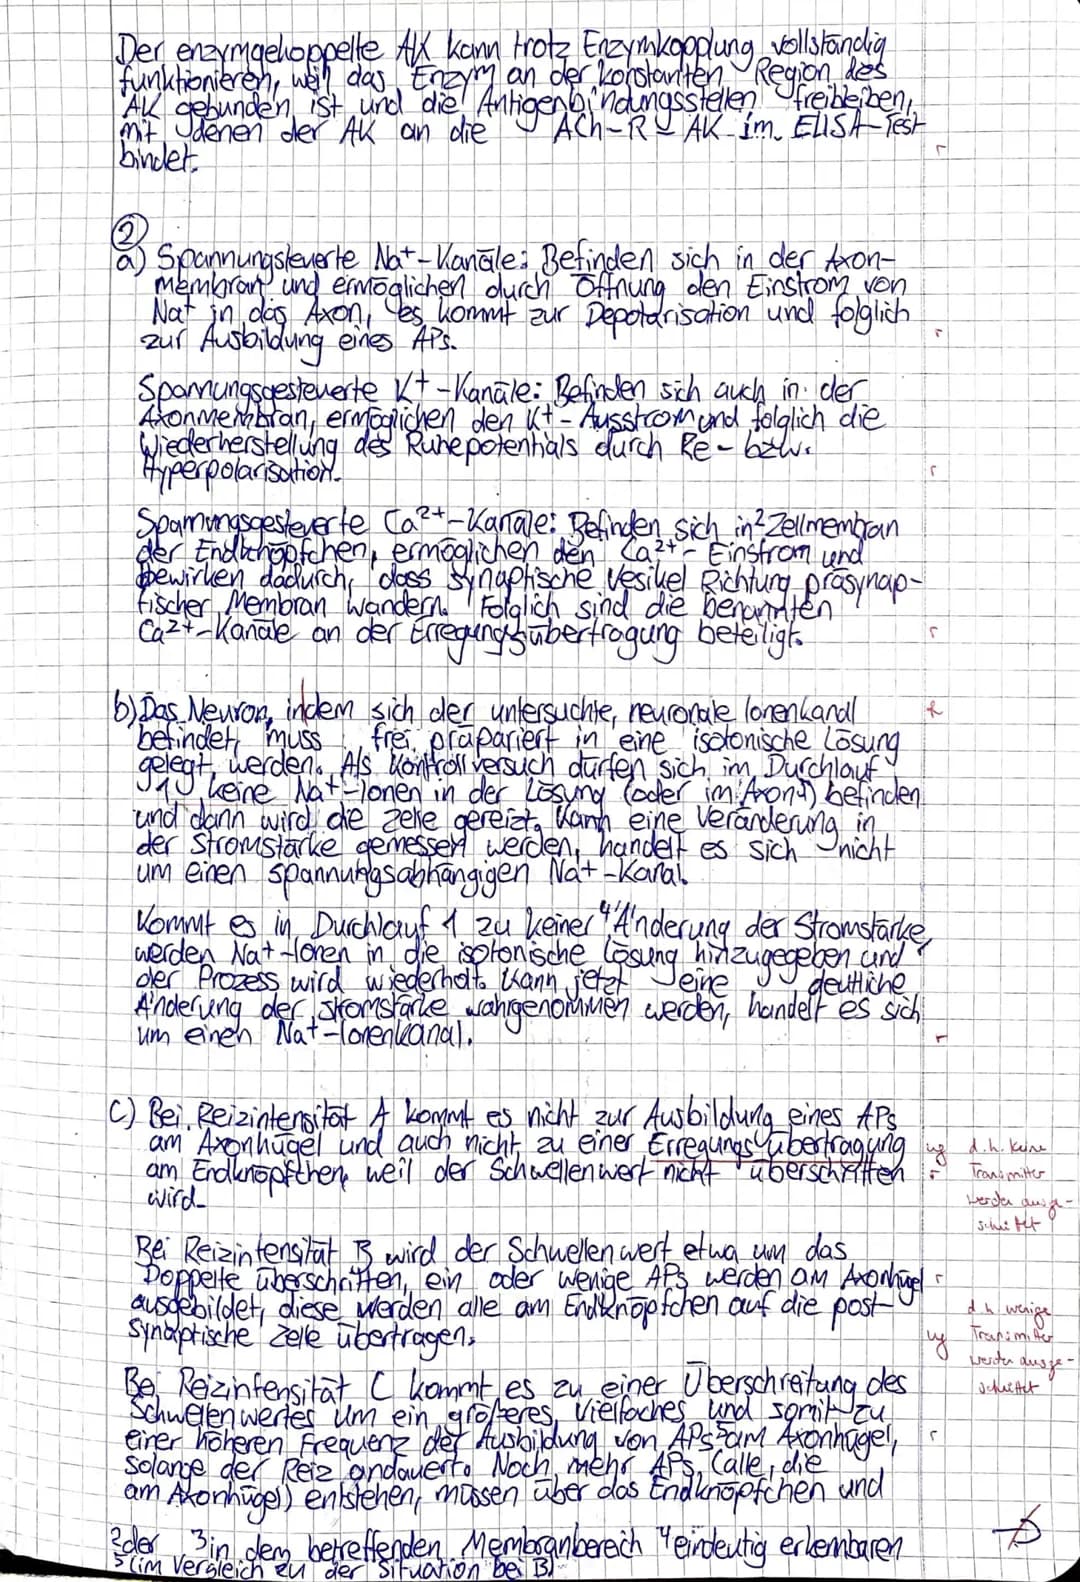 Der enzymgekoppelte AK kann trotz Enzymkopplung vollständig
funktionieren, weil das Enzym an der konstanten Region des
AK gebunden ist und die Antigenbindungsstellen freibleiben,
mit denen der AK an die ACh-R-AK im ELISA-Test
bindet.
r
②
a) Spannungsteuerte Na+-Kanäle: Befinden sich in der Axon-
membran und ermöglichen durch Öffnung den Einstrom von
Na+ in das Axon, es kommt zur Depolarisation und folglich
zur Ausbildung eines APs.
r
Spannungsgesteuerte K+-Kanäle: Befinden sich auch in der
Axonmembran, ermöglichen den K+-Ausstrom und folglich die
Wiederherstellung des Ruhepotentials durch Re- bzw.
Hyperpolarisation.
r
Spannungsgesteuerte Ca2+-Kanäle: Befinden sich in ² Zellmembran
der Endknöpfchen, ermöglichen den Ca2+-Einstrom und
bewirken dadurch, dass synaptische Vesikel Richtung präsynap-
tischer Membran wandern. Folglich sind die benannten
Ca2+-Kanäle an der Erregungsübertragung beteiligt.
r
b) Das Neuron, indem sich der untersuchte, neuronale Ionenkanal
befindet, muss frei präpariert in eine isotonische Lösung
gelegt werden. Als Kontrollversuch dürfen sich im Durchlauf
1 keine Na+-Ionen in der Lösung (oder im Axon ³) befinden
und dann wird die Zelle gereizt. Kann eine Veränderung in
der Stromstärke gemessen werden, handelt es sich nicht
um einen spannungsabhängigen Na+-Kanal.
Kommt es in Durchlauf 1 zu keiner ⁴ Änderung der Stromstärke,
werden Na+-Ionen in die isotonische Lösung hinzugegeben und
der Prozess wird wiederholt. Kann jetzt eine deutliche
Änderung der Stromstärke wahrgenommen werden, handelt es sich
um einen Na+-Ionenkanal.
r
c) Bei Reizintensität A kommt es nicht zur Ausbildung eines APs
am Axonhügel und auch nicht zu einer Erregungsübertragung
am Endknöpfchen, weil der Schwellenwert nicht überschritten
wird.
ug d.h. keine
r Transmitter
werden ausge-
schüttet
Bei Reizintensität B wird der Schwellenwert etwa um das
Doppelte überschritten, ein oder wenige APs werden am Axonhügel
ausgebildet, diese werden alle am Endknöpfchen auf die post-
synaptische Zelle übertragen.
r
d.h. wenige
ug Transmitter
werden ausge-
schüttet
Bei Reizintensität C kommt es zu einer Überschreitung des
Schwellenwertes um ein größeres Vielfaches und somit zu
einer höheren Frequenz der Ausbildung von APs ⁵ am Axonhügel,
solange der Reiz andauert. Noch mehr APs (alle, die
am Axonhügel) entstehen, müssen über das Endknöpfchen und
r
² der ³ in dem betreffenden Membranbereich ⁴ eindeutig erkennbaren
⁵ (im Vergleich zu der Situation bei B)